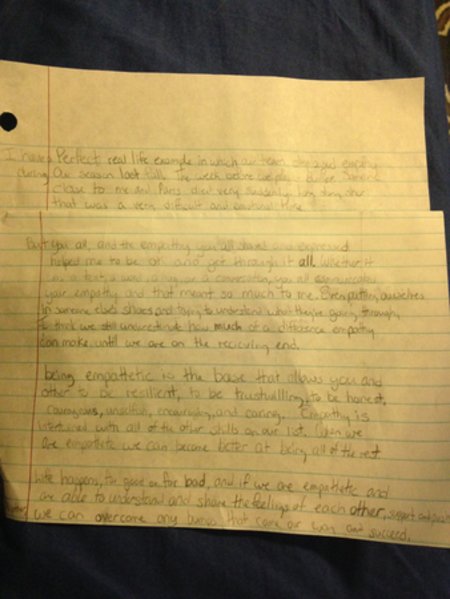 I have a perfect real life example in which our team showed empathy
during our season last fall. The week before we
close to me and died very suddenly
that was a very difficult and emotional time
But you all, and the empathy you all shared and expressed
helped me to be ok and get through it all. Whether it
a text, a or a conversation, you all communicated
your empathy and that meant so much to me. Even putting ourselves
in someone else's shoes and trying to understand what they're going through,
I think we still underestimate how much of a difference empathy
can make until we are on the reciving end.
being empathetic is the base that allows you and
other to be resilient, to be trustwilling, to be honest,
courageous, unselfish, encouraging, and caring. Empathy is
intertwined with all of the other skills on our list. When we
are empathetic we can become better at being all of the rest
Life happens, for good or for bad, and if we are empathetic and
are able to understand and share the feelings of each other, support and
we can overcome any that come our way and succeed.